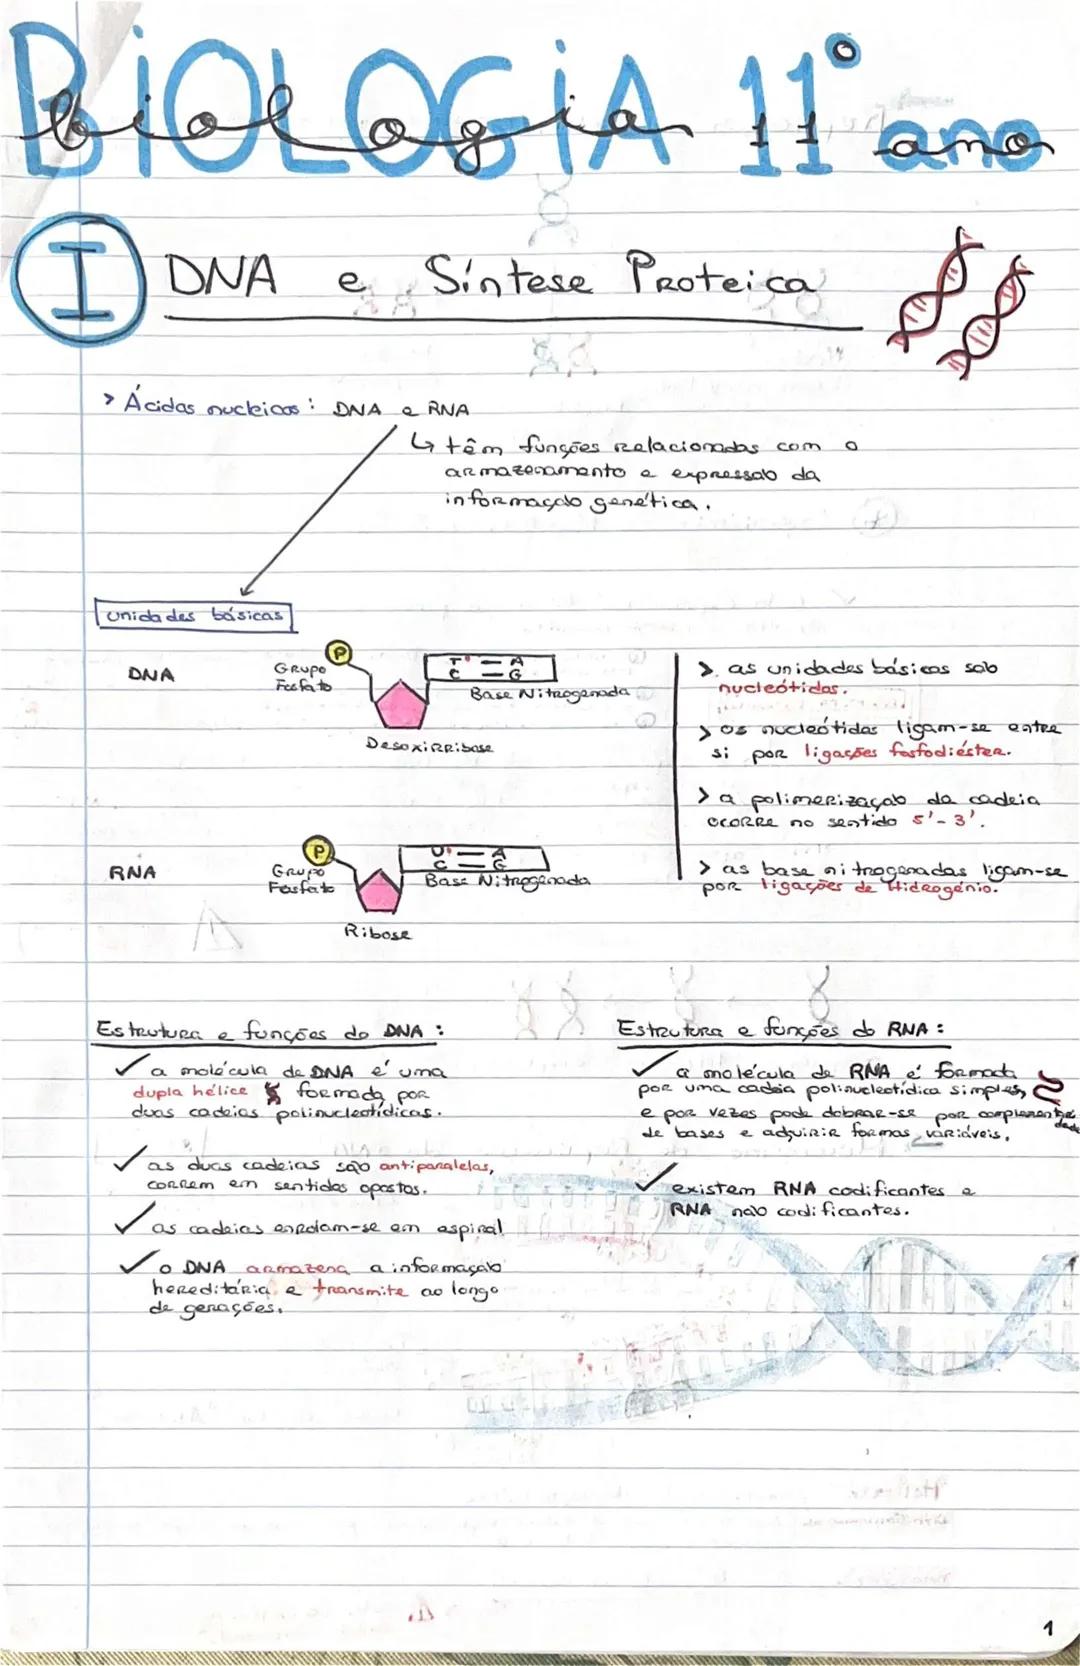 BIOLOGIA 11º ano
biologia 11 ano
I DNA e Síntese Proteica
> Ácidos nucleicos: DNA e RNA
↳ têm funções relacionadas com o
armazenamento e expressão da
informação genética.
unidades básicas
DNA
Grupo
Fosfato
P
T = A
C = G
Base Nitrogenada
Desoxirribose
> as unidades básicas são
nucleótidos.
> os nucleótidos ligam-se entre
si por ligações fosfodiéster.
> a polimerização da cadeia
ocorre no sentido 5'-3'.
> as base nitrogenadas ligam-se
por ligações de Hidrogénio.
RNA
Grupo
Fosfato
P
U = A
C = G
Base Nitrogenada
Ribose
Estrutura e funções do DNA:
✓ a molécula de DNA é uma
dupla hélice formada por
duas cadeias polinucleotídicas.
✓ as duas cadeias são antiparalelas,
correm em sentidos opostos.
✓ as cadeias enrolam-se em espiral
✓ o DNA armazena a informação
hereditária e transmite ao longo
de gerações.
Estrutura e funções do RNA:
✓ a molécula de RNA é formada
por uma cadeia polinucleotídica simples,
e por vezes pode dobrar-se por complementari
dade
de bases e adquirir formas variáveis.
✓ existem RNA codificantes e
RNA não codificantes.
1